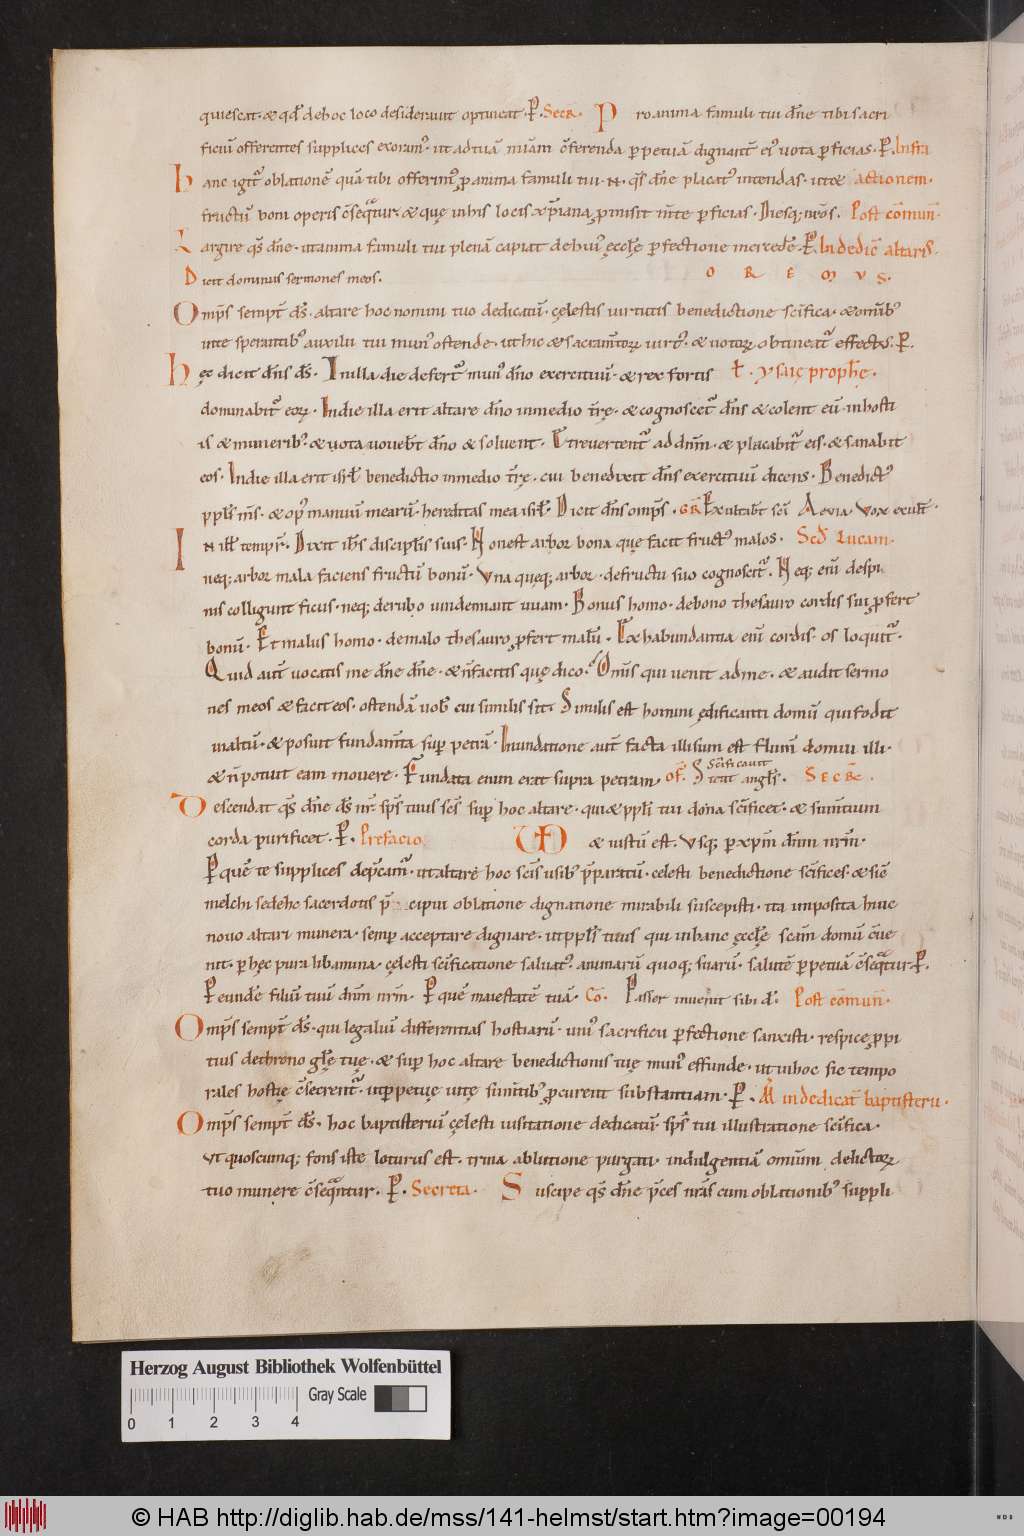 quiescat · & qd̄ de hoc loco desideravit optineat · P̄ · Secr̄ · Pro anima famuli tui dn̄e tibi sacri
ficiū offerentes supplices exoram᷒ · ut ad tuā m̄iam c̄ferenda p̱petuā dignant᷒ ei᷒ vota p̱ficias · P̄ · Infra
hanc igit᷒ oblationē quā tibi offerim᷒ p̱ anima famuli tui · N · qs̄ dn̄e placat᷒ intendas · ut & actionem ·
fructū boni operis c̄seq̄tur · & quę in his locis xp̄iana p̱misit m̄te p̱ficias · Diesq; nr̄os · Post com̄un̄ ·
Largire qs̄ dn̄e · ut anima famuli tui plenā capiat de hui᷒ ęccl̄ę p̱fectione mercedē · P̄ · In dedic̄ altaris ·
Dicit dominus sermones meos · O R E M V S ·
Omp̄s sempt̄ ds̄ · altare hoc nomini tuo dedicatū · cęlestis virtutis benedictione sc̄ifica · & om̄ib᷒
in te sperantib᷒ auxilii tui mun᷒ ostende · ut hic & sacram̄torꝝ virt᷒ · & votorꝝ obtineat᷒ effectus · P̄ ·
Hęc dicit dn̄s ds̄ · In illa die defert᷒ mun᷒ dn̄o exercituū · & rex fortis ł · ysaię proph̄e ·
dominabit᷒ eorꝝ · In die illa erit altare dn̄o in medio t̄rę · & cognoscet᷒ dn̄s & colent eū · in hosti
is & munerib᷒ · & vota vovebt̄ dn̄o & solvent · Et revertent᷒ ad dnm̄ · & placabit᷒ eis · & sanabit
eos · In die illa erit isrl̄ benedictio in medio t̄rę · cui benedixit dn̄s exercituū dicens · Benedict᷒
ppl̄s m̄s · & op᷒ manuū mearū · hereditas mea isrl̄ · Dicit dn̄s omp̄s · GR̄ Exultabt̄ sc̄i Aevia Vox exult̄ ·
In ill̄ tempr̄ · Dixit ih̄s discipl̄is suis · Non est arbor bona que facit fruct᷒ malos · Scd̄ Lucam ·
neq; arbor mala faciens fructū bonū · Vna quęq; arbor · de fructu suo cognoscit᷒ · Neq; eni̅ de spi
nis colligunt ficus · neq; de rubo vindemiant uuam · Bonus homo · de bono thesauro cordis sui p̱fert
bonū · Et malus homo · de malo thesauro p̱fert malū · Ex habundantia eni̅ cordis · os loquit᷒ ·
Quid aut̄ vocatis me dn̄e dn̄e · & n̄ facitis quę dico · Omis̄ qui venit ad me · & audit sermo
nes meos & facit eos · ostendā vob̄ cui similis sit · Similis est homini ędificanti domū qui fodit
in altū · & posuit fundam̄ta sup̱ petrā · Inundatione aut̄ facta illisum est flum̄ domui illi ·
& n̄ potuit eam movere · Fundata enim erat supra petram · of̄ · S sc̄ificavit Stetit angl̄s · SECRE ·
Descendat qs̄ dn̄e ds̄ nr̄ sp̄s tuus sc̄s sup̱ hoc altare · qui & ppl̄i tui dona sc̄ificet · & sum̄tium
corda purificet · P̄ · Prefacio VD & iustū est · Vsq; p̱ xpm̄ dnm̄ nrm̄ ·
P̄ quē te supplices dep̄cam᷒ · ut altare hoc sc̄is usib᷒ p̄paratū · celesti benedictione sc̄ifices · & sic̄
melchisedehc sacerdotis p̄cipui oblatione dignatione mirabili suscepisti · ita imposita huic
novo altari munera · semp̱ acceptare dignare · ut ppl̄s tuus qui in hanc ęccl̄ę scam̄ domū c̄ve
nit · p̱ hęc pura libamina · cęlesti sc̄ificatione salvat᷒ · animarū quoq; suarū · salutē p̱petuā c̄seq̄tur · P̄ ·
P̄ eundē filiū tuū dnm̄ nrm̄ · P̄ quē maiestatē tuā · Co᷃ · Passer invenit sibi d̄ · Post com̄un̄ ·
Omp̄s sempt̄ ds̄ · qui legaliū differentias hostiarū · uni᷒ sacrificii p̱fectione sanxisti · respice p̱pi
tius de throno gl̄ę tuę · & sup̱ hoc altare benedictionis tuę mun᷒ effunde · ut in hoc sic tempo
rales hostię c̄secrent᷒ · ut p̱petuę vitę sum̄tib᷒ p̱curent substantiam · P̄ · M̄ in dedicat̄ baptisterii ·
Omp̄s sempt̄ ds̄ · hoc baptisterium cęlesti visitatione dedicatū · sp̄s tui illustratione sc̄ifica ·
Vt quoscumq; fons iste loturus est · trina ablutione purgati · indulgentiā omnium delictorꝝ
tuo munere c̄seq̄ntur · P̄ · Secreta · Suscipe qs̄ dn̄e p̄ces nr̄as cum oblationib᷒ suppli
Herzog August Bibliothek Wolfenbüttel
Gray Scale
0 1 2 3 4
© HAB http://diglib.hab.de/mss/141-helmst/start.htm?image=00194